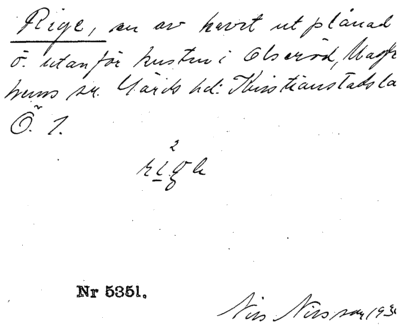 Rige, en av havet utplånad
ö. utanför kusten i Olseröd, Magle-
hems sn. Gärds hd: Kristianstads lä
Ö. 1.
2
rigə
Nr 5351.
Nils Nilsson 193